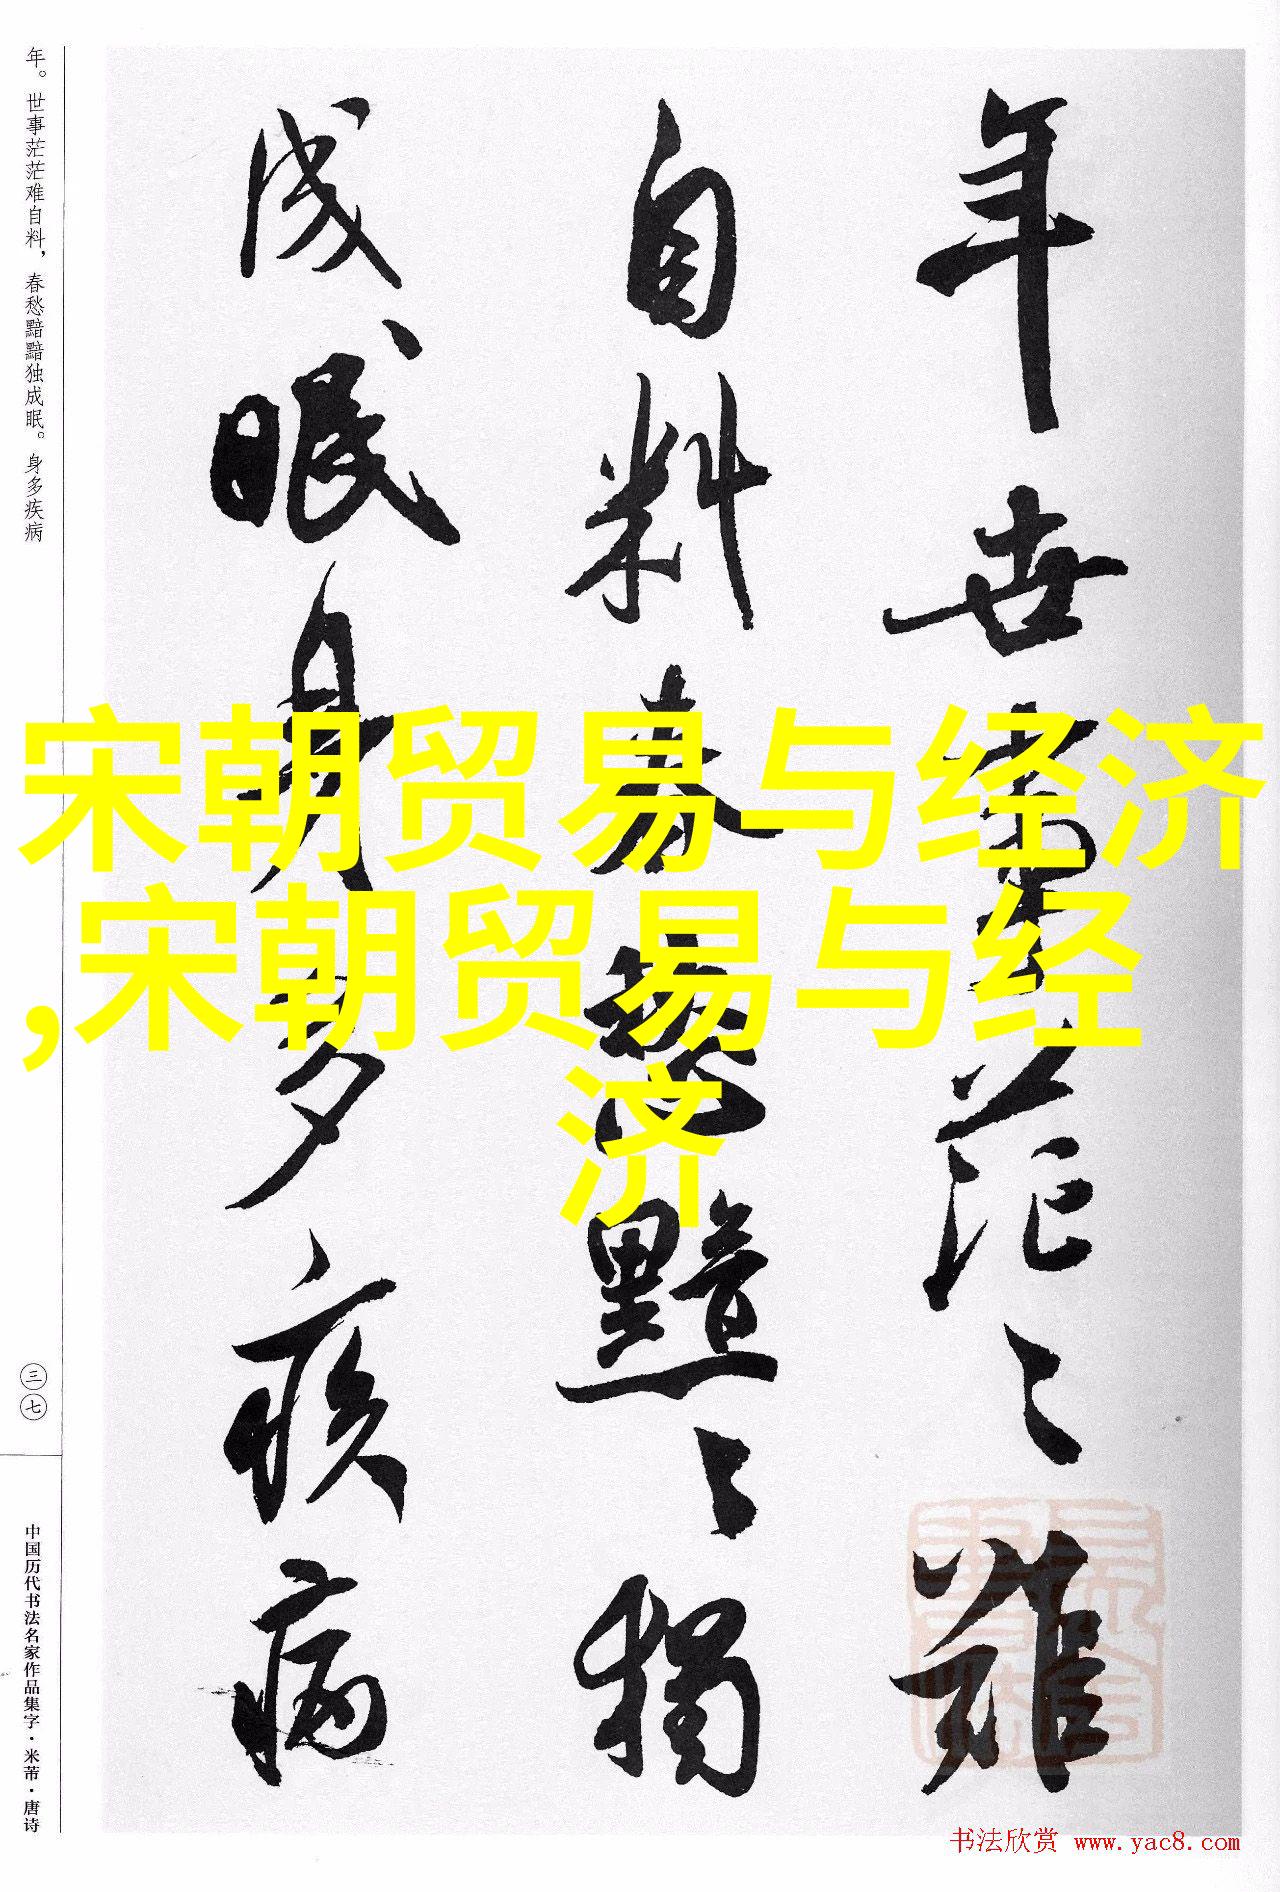 年世事茫々難
自料春愁黯々獨
成眠身多疾病
年。世事茫茫难自料，春愁黯黯独成眠。身多疾病
三七
中国历代书法名家作品集字·米芾·唐诗
宋朝贸易与经济
,宋朝贸易与经
济
书法欣赏 www.yac8.com